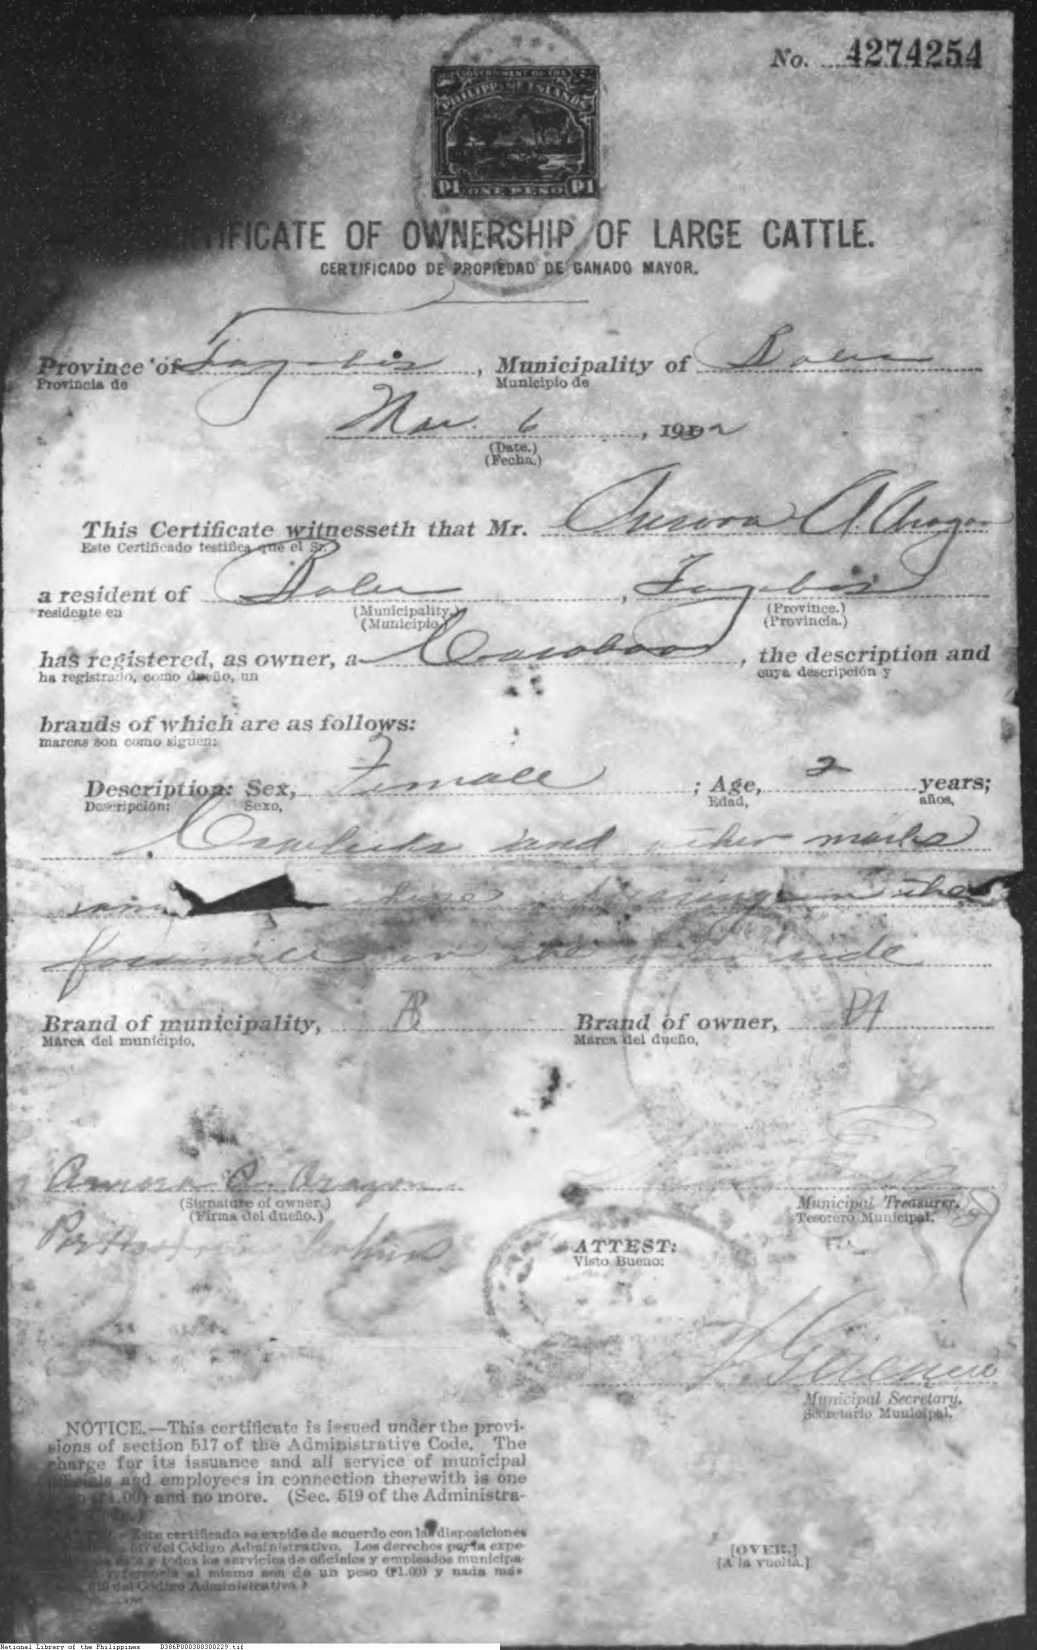 No. 4274254
GOVERNMENT OF THE
PHILIPPINE ISLANDS
P1 ONE PESO P1
CERTIFICATE OF OWNERSHIP OF LARGE CATTLE.
CERTIFICADO DE PROPIEDAD DE GANADO MAYOR.
Province of Tayabas, Municipality of Baler
Provincia de Municipio de
Mar. 6, 19
(Date.)
(Fecha.)
This Certificate witnesseth that Mr. Aurora A. Aragon
Este Certificado testifica que el Sr.
a resident of Baler, Tayabas
residente en (Municipality.) (Province.)
(Municipio.) (Provincia.)
has registered, as owner, a Carabao, the description and
ha registrado, como dueño, un cuya descripción y
brands of which are as follows:
marcas son como siguen:
Description: Sex, Female; Age, 2 years;
Descripción: Sexo, Edad, años,
Cowlicks and other marks
same in the
facsimile on the side
Brand of municipality, B Brand of owner,
Marca del municipio, Marca del dueño,
Aurora A. Aragon
(Signature of owner.) Municipal Treasurer.
(Firma del dueño.) Tesorero Municipal.
ATTEST:
Visto Bueno:
Municipal Secretary.
Secretario Municipal.
NOTICE.—This certificate is issued under the provi-
sions of section 517 of the Administrative Code. The
charge for its issuance and all service of municipal
officials and employees in connection therewith is one
(₱1.00) and no more. (Sec. 519 of the Administra-
Este certificado se expide de acuerdo con las disposiciones
del Código Administrativo. Los derechos por la expe-
y todos los servicios de oficiales y empleados municipa-
referencia al mismo son de un peso (₱1.00) y nada más
519 del Código Administrativo.)
[OVER.]
[A la vuelta.]
National Library of the Philippines D386P000300300229.tif